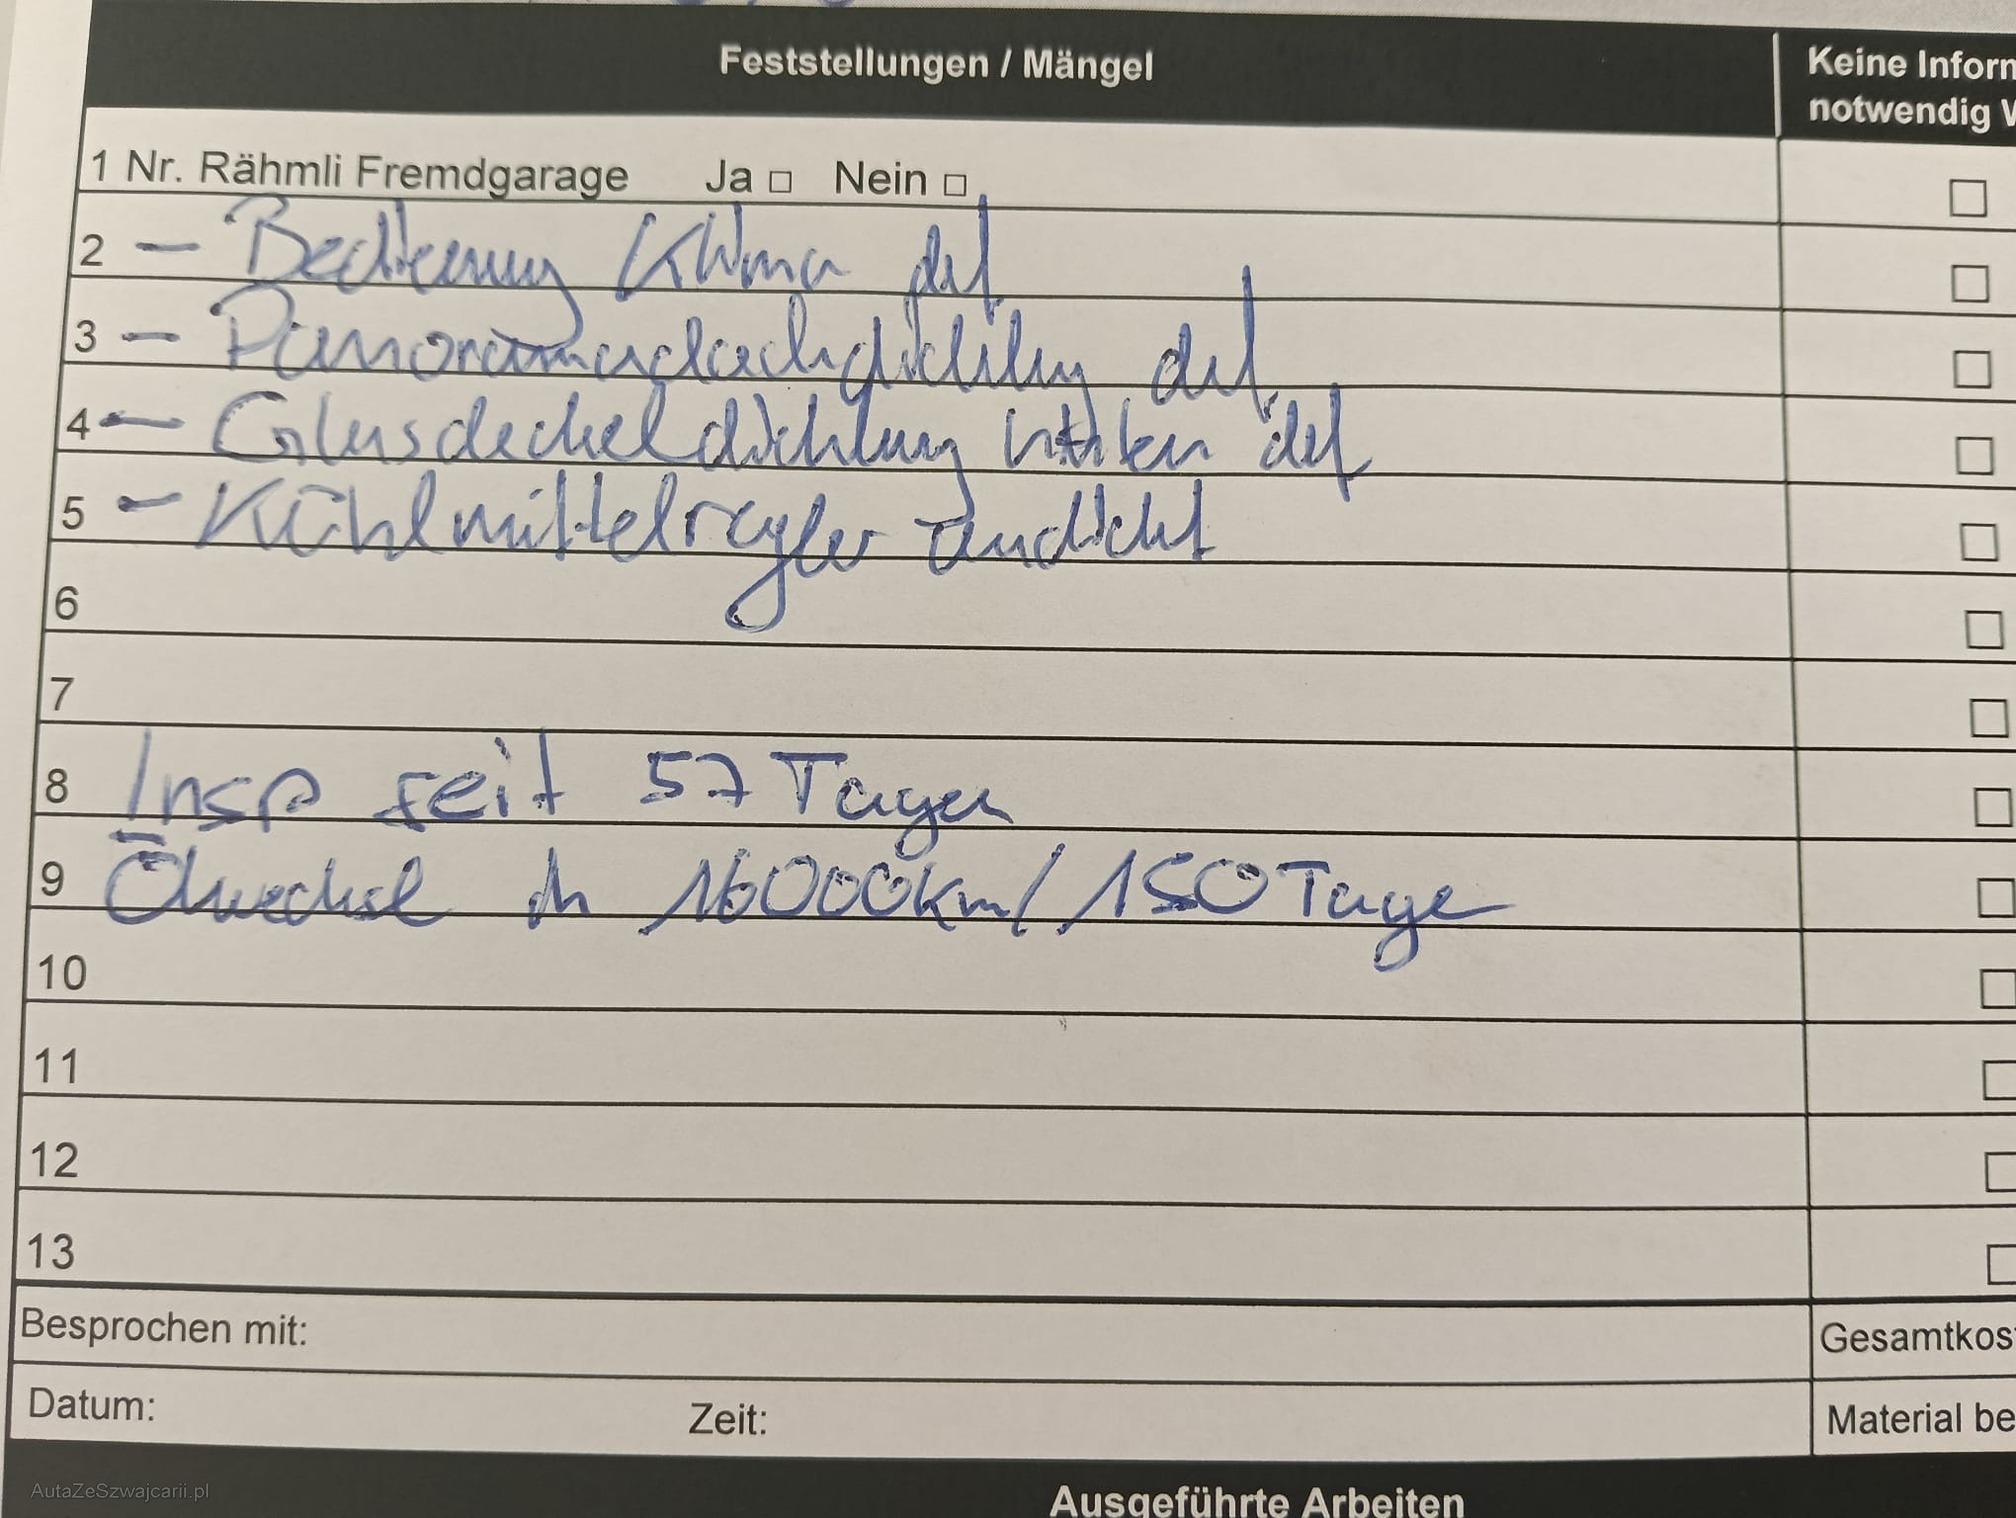 Feststellungen / Mängel
Keine Inform
notwendig W
1 Nr. Rähmli Fremdgarage Ja □ Nein □
2 - Bedienung Klima def
3 - Panoramadachdichtung def
4 - Glasdeckeldichtung hinten def
5 - Kühlmittelregler undicht
6
7
8 Insp seit 57 Tagen
9 Ölwechsel in 16000km/150Tage
10
11
12
13
Besprochen mit:
Gesamtkos
Datum: Zeit:
Material be
Ausgeführte Arbeiten
AutaZeSzwajcarii.pl